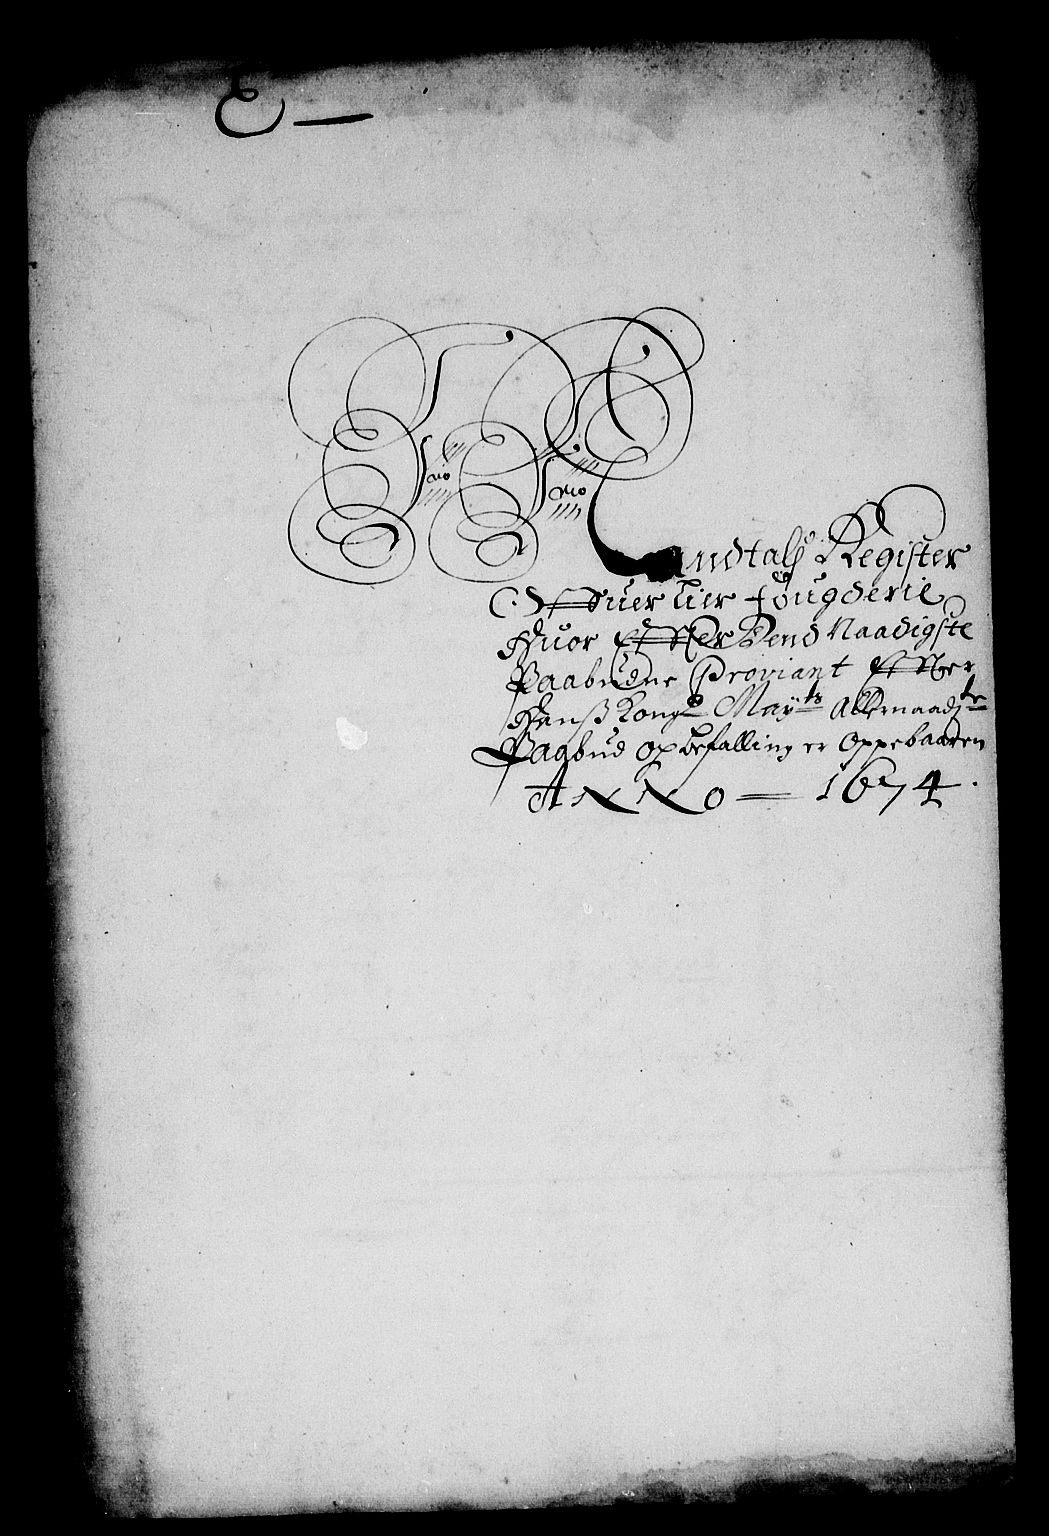 E —
Mandtals Register
Offuer Lier Fougderie
Huor Effter Dend Naadigste
Paabudne Proviant Effter
Hanß Kongl Mayts Allernaadste
Pagbud og befalling er Oppebaaren
ANNO — 1674.